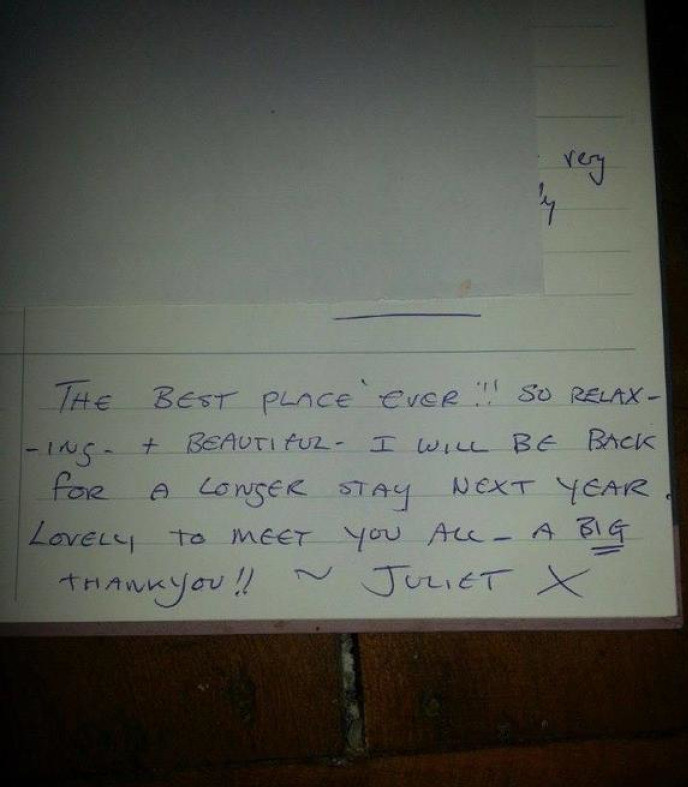 very
THE BEST PLACE EVER!!! SO RELAX-
-ING. + BEAUTIFUL- I WILL BE BACK
FOR A LONGER STAY NEXT YEAR.
LOVELY TO MEET YOU ALL - A BIG
THANKYOU!! ~ JULIET X